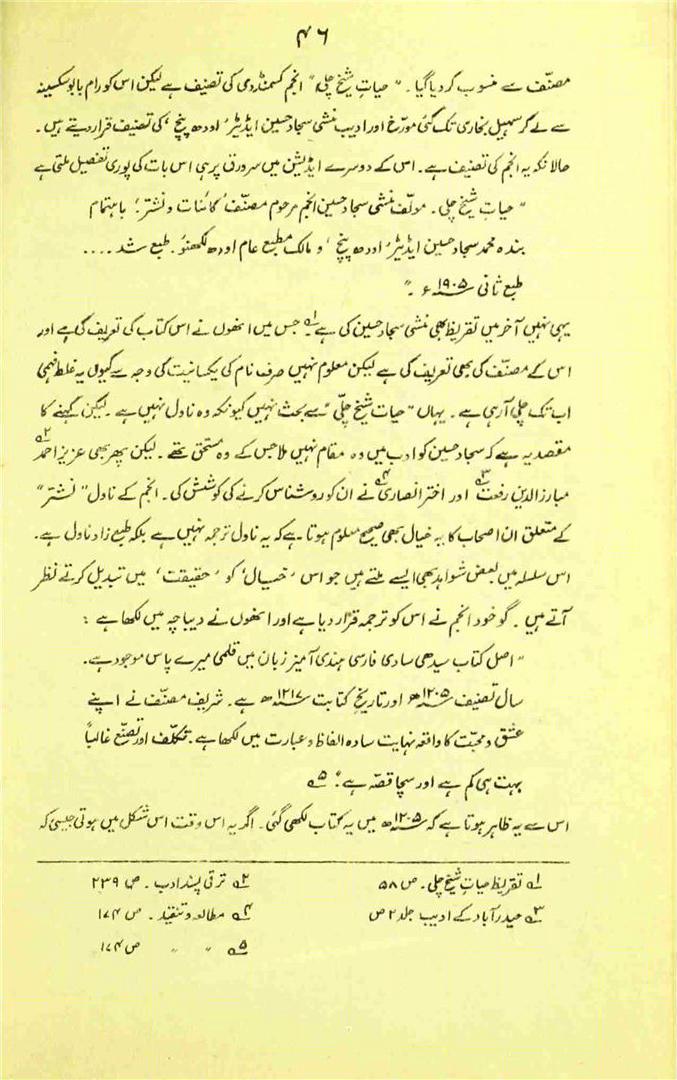 ۴۶
مصنّف سے منسوب کر دیا گیا۔ "حیاتِ شیخ چلی" انجم کسمنڈوی کی تصنیف ہے لیکن اس کو رام بابو سکسینہ
سے لے کر سہیل بخاری تک کئی مورّخ اور ادیب منشی سجاد حسین ایڈیٹر 'اودھ پنچ' کی تصنیف قرار دیتے ہیں۔
حالانکہ یہ انجم کی تصنیف ہے۔ اس کے دوسرے ایڈیشن میں سرورق پر ہی اس بات کی پوری تفصیل ملتی ہے
"حیاتِ شیخ چلی۔ مولّف منشی سجاد حسین انجم مرحوم مصنّف 'کائنات و نشتر'؛ باہتمام
بندہ محمد سجاد حسین ایڈیٹر 'اودھ پنچ' و مالک مطبع عام اودھ لکھنؤ۔ طبع شد ....
طبع ثانی ۱۹۰۵؁ء۔"
یہی نہیں آخر میں تقریظ بھی منشی سجاد حسین کی ہے۱؎ جس میں انھوں نے اس کتاب کی تعریف کی ہے اور
اس کے مصنّف کی بھی تعریف کی ہے لیکن معلوم نہیں صرف نام کی یکسانیت کی وجہ سے کیوں یہ غلط فہمی
اب تک چلی آ رہی ہے۔ یہاں "حیات شیخ چلّی" سے بحث نہیں کیونکہ وہ ناول نہیں ہے۔ لیکن کہنے کا
مقصد یہ ہے کہ سجاد حسین کو ادب میں وہ مقام نہیں ملا جس کے وہ مستحق تھے۔ لیکن پھر بھی عزیز احمد۲؎
مبارزالدین رفعت۳؎ اور اختر انصاری۴؎ نے ان کو روشناس کرنے کی کوشش کی۔ انجم کے ناول "نشتر"
کے متعلق ان اصحاب کا یہ خیال بھی صحیح معلوم ہوتا ہے کہ یہ ناول ترجمہ نہیں ہے بلکہ طبع زاد ناول ہے۔
اس سلسلہ میں بعض شواہد بھی ایسے ملتے ہیں جو اس 'خیال' کو 'حقیقت' میں تبدیل کرتے نظر
آتے ہیں۔ گو خود انجم نے اس کو ترجمہ قرار دیا ہے اور انھوں نے دیباچہ میں لکھا ہے:
"اصل کتاب سیدھی سادی فارسی ہندی آمیز زبان میں قلمی میرے پاس موجود ہے۔
سال تصنیف ۱۲۰۵؁ھ اور تاریخ کتابت ۱۲۱۷؁ھ ہے۔ شریف مصنّف نے اپنے
عشق و محبّت کا واقعہ نہایت سادہ الفاظ و عبارت میں لکھا ہے۔ تکلّف اور تصنّع غالباً
بہت ہی کم ہے اور سچا قصّہ ہے۔"۵؎
اس سے یہ ظاہر ہوتا ہے کہ ۱۲۰۵؁ھ میں یہ کتاب لکھی گئی۔ اگر یہ اس وقت اس شکل میں ہوتی جیسی کہ
۱؎ تقریظ حیاتِ شیخ چلی۔ ص ۵۸
۲؎ ترقی پسند ادب۔ ص ۲۳۹
۳؎ حیدرآباد کے ادیب جلد ۲ ص
۴؎ مطالعہ و تنقید۔ ص ۱۷۴
۵؎ " " ص ۱۷۴